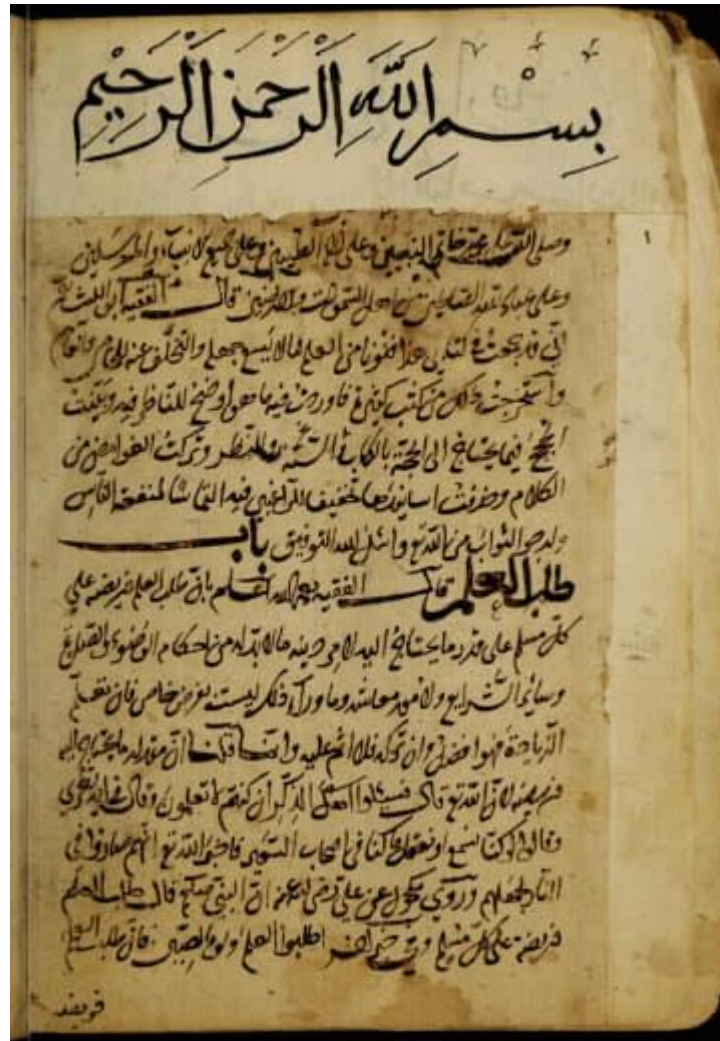 بِسْمِ اللهِ الرَّحْمٰنِ الرَّحِيْمِ
وصلى الله على محمد خاتم النبيين وعلى آله الطيبين وعلى جميع الانبياء والمرسلين
وعلى عباد الله الصالحين من اهل السموات والارضين قال الفقيه ابو الليث
اني قد جمعت في كتابي هذا فنونا من العلم ما لا يسع جهله والتخلف عنه للخاص والعام
واستخرجت ذلك من كتب كثيرة فاوردت فيه ما هو اوضح للناظر فيه وبينت
الحجج فيما يحتاج الى الحجة بالكتاب والسنة والنظر وتركت الغوامض من
الكلام وحذفت اسانيدها تخفيفا للراغبين فيه التماسا لمنفعة الناس
ولرجو الثواب من الله تع واسئل الله التوفيق باب
طلب العلم قال الفقيه رحمه الله اعلم بان طلب العلم فريضة على
كل مسلم على قدر ما يحتاج اليه لامر دينه مما لا بد له من احكام الوضوء والصلوة
وسائر الشرايع ولامور معاشه وما وراء ذلك ليست بفرض خاص فان تعلم
الزيادة فهوا فضل وان تركه فلا اثم عليه وانما قلنا ان مقدار ما يحتاج اليه
فريضة لان الله تع قال فسئلوا اهل الذكر ان كنتم لا تعلمون وقال في آية اخرى
وقالوا لو كنا نسمع او نعقل ما كنا في اصحاب السعير فاخبر الله تع انهم صاروا في
النار لجهلهم وروى مكحول عن علي رضي الله عنه ان النبي صلعم قال طلب العلم
فريضة على كل مسلم وفي خبر آخر اطلبوا العلم ولو بالصين فان طلب العلم
فريضة
١